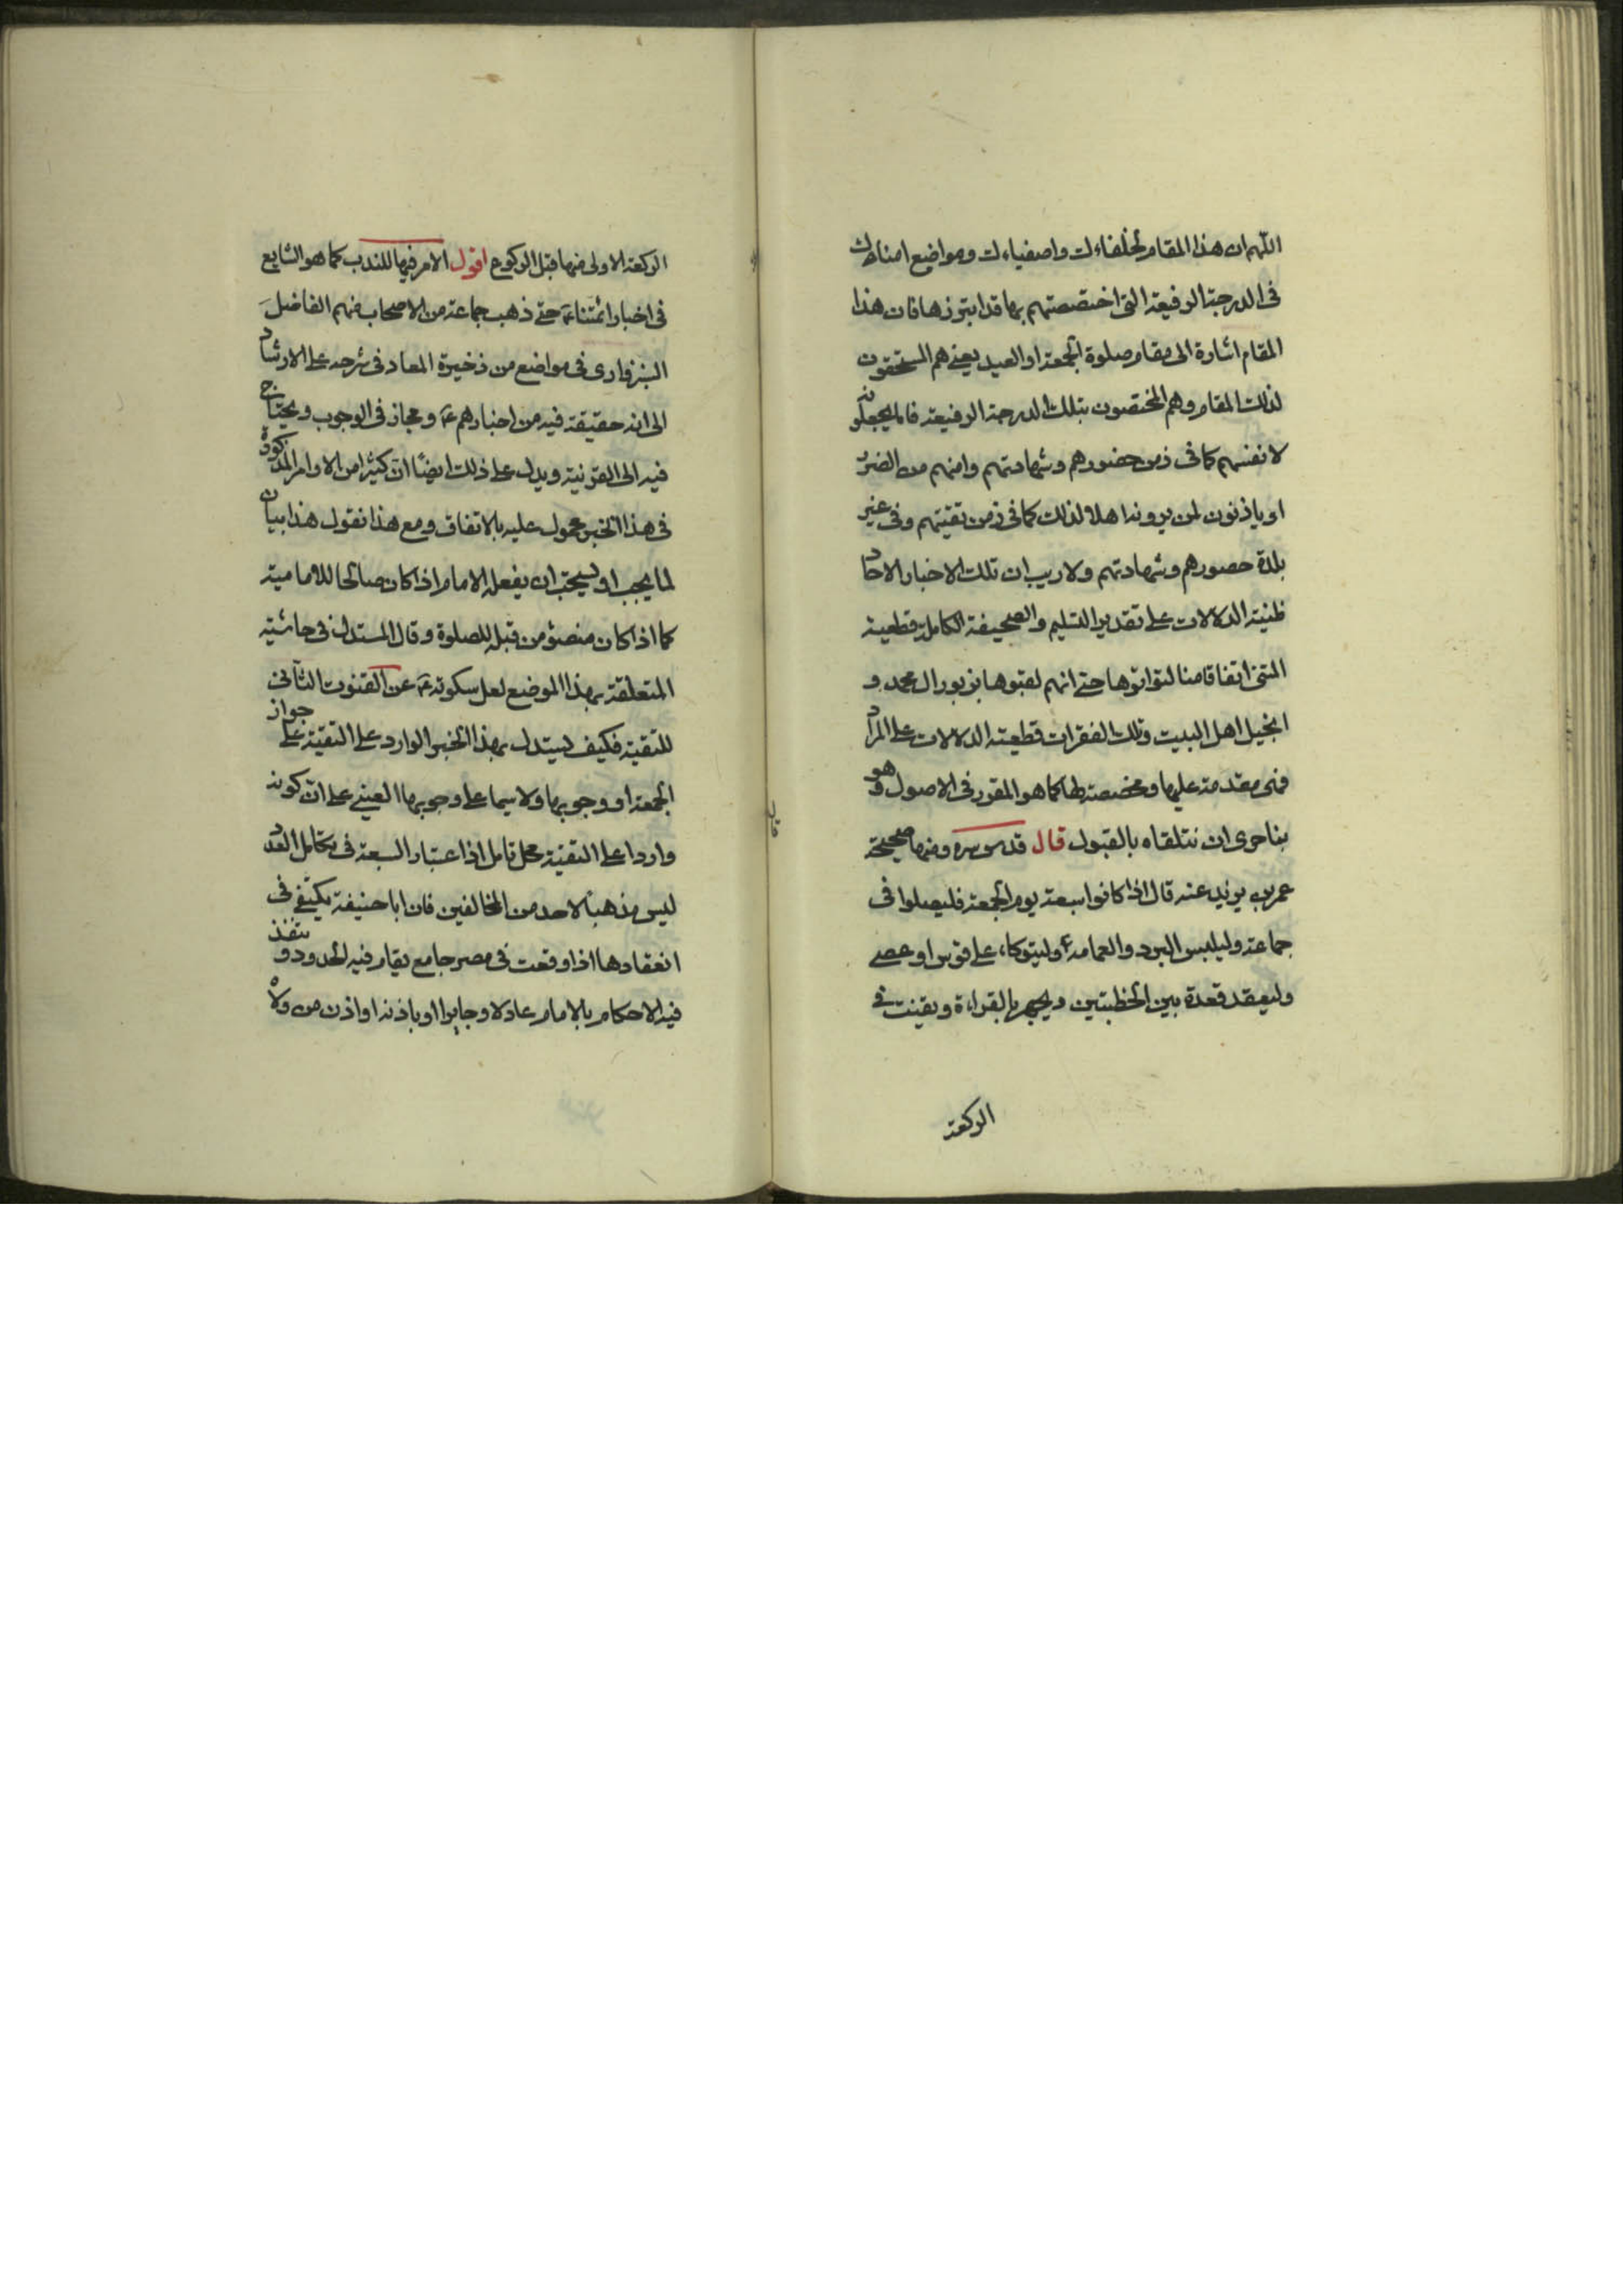 اللهم ان هذا المقام لخلفاءك واصفياءك ومواضع امناءك
فى الدرجة الرفيعة التى اختصصتهم بها قد ابتزوها فان هذا
المقام اشارة الى مقام صلوة الجمعة او العيد يعنى هم المستحقون
لذلك المقام وهم المختصون بتلك الدرجة الرفيعة فاما يجعلونه
لانفسهم كما فى زمن حضورهم وشهادتهم وامنهم من الضرر
او ياذنون لمن يرونه اهلا لذلك كما فى زمن تقيتهم وفى غير
بلدة حضورهم وشهادتهم ولا ريب ان تلك الاخبار الاحاد
ظنية الدلالات على تقدير التسليم والصحيفة الكاملة قطعية
المتن اتفاقا منا لتواترها حتى انهم لقبوها بزبور ال محمد و
انجيل اهل البيت وتلك الفقرات قطعية الدلالات على المراد
فهى مقدمة عليها ومخصصة لها كما هو المقرر فى الاصول وهو
بنا حرى ان نتلقاه بالقبول قال قدس سره ومنها صحيحة
عمر بن يزيد عنه قال اذا كانوا سبعة يوم الجمعة فليصلوا فى
جماعة وليلبس البرد والعمامة وليتوكاء على قوس او عصى
وليقعد قعدة بين الخطبتين ويجهر بالقراءة ويقنت فى
الركعة
الركعة الاولى منها قبل الركوع اقول الامر فيها للندب كما هو الشايع
فى اخبار ائمتنا عم حتى ذهب جماعة من الاصحاب منهم الفاضل
السبزوارى فى مواضع من ذخيرة المعاد فى شرحه على الارشاد
الى انه حقيقة فيه من اخبارهم عم ومجاز فى الوجوب ويحتاج
فيه الى القرنية ويدل على ذلك ايضا ان كثيرا من الاوامر المذكورة
فى هذا الخبر محمول عليه بالاتفاق ومع هذا نقول هذا بيان
لما يجب او يستحب ان يفعله الامام اذا كان صالحا للامامية
كما اذا كان منصوبا من قبله للصلوة وقال المستدل فى حاشية
المتعلقة بهذا الموضع لعل سكوته عم عن القنوت الثانى
للتقية فكيف يستدل بهذا الخبر الوارد على التقية على جواز
الجمعة او وجوبها ولا سيما على وجوبها العينى على ان كونه
واردا على التقية محل تامل اذ اعتبار السبعة فى تكامل العدد
ليس مذهبا لاحد من المخالفين فان ابا حنيفة يكتفى فى
انعقادها اذا وقعت فى مصر جامع يقام فيه الحدود و تنفذ
فيه الاحكام بالامام عادلا وجايرا او باذنه او اذن من ولاه